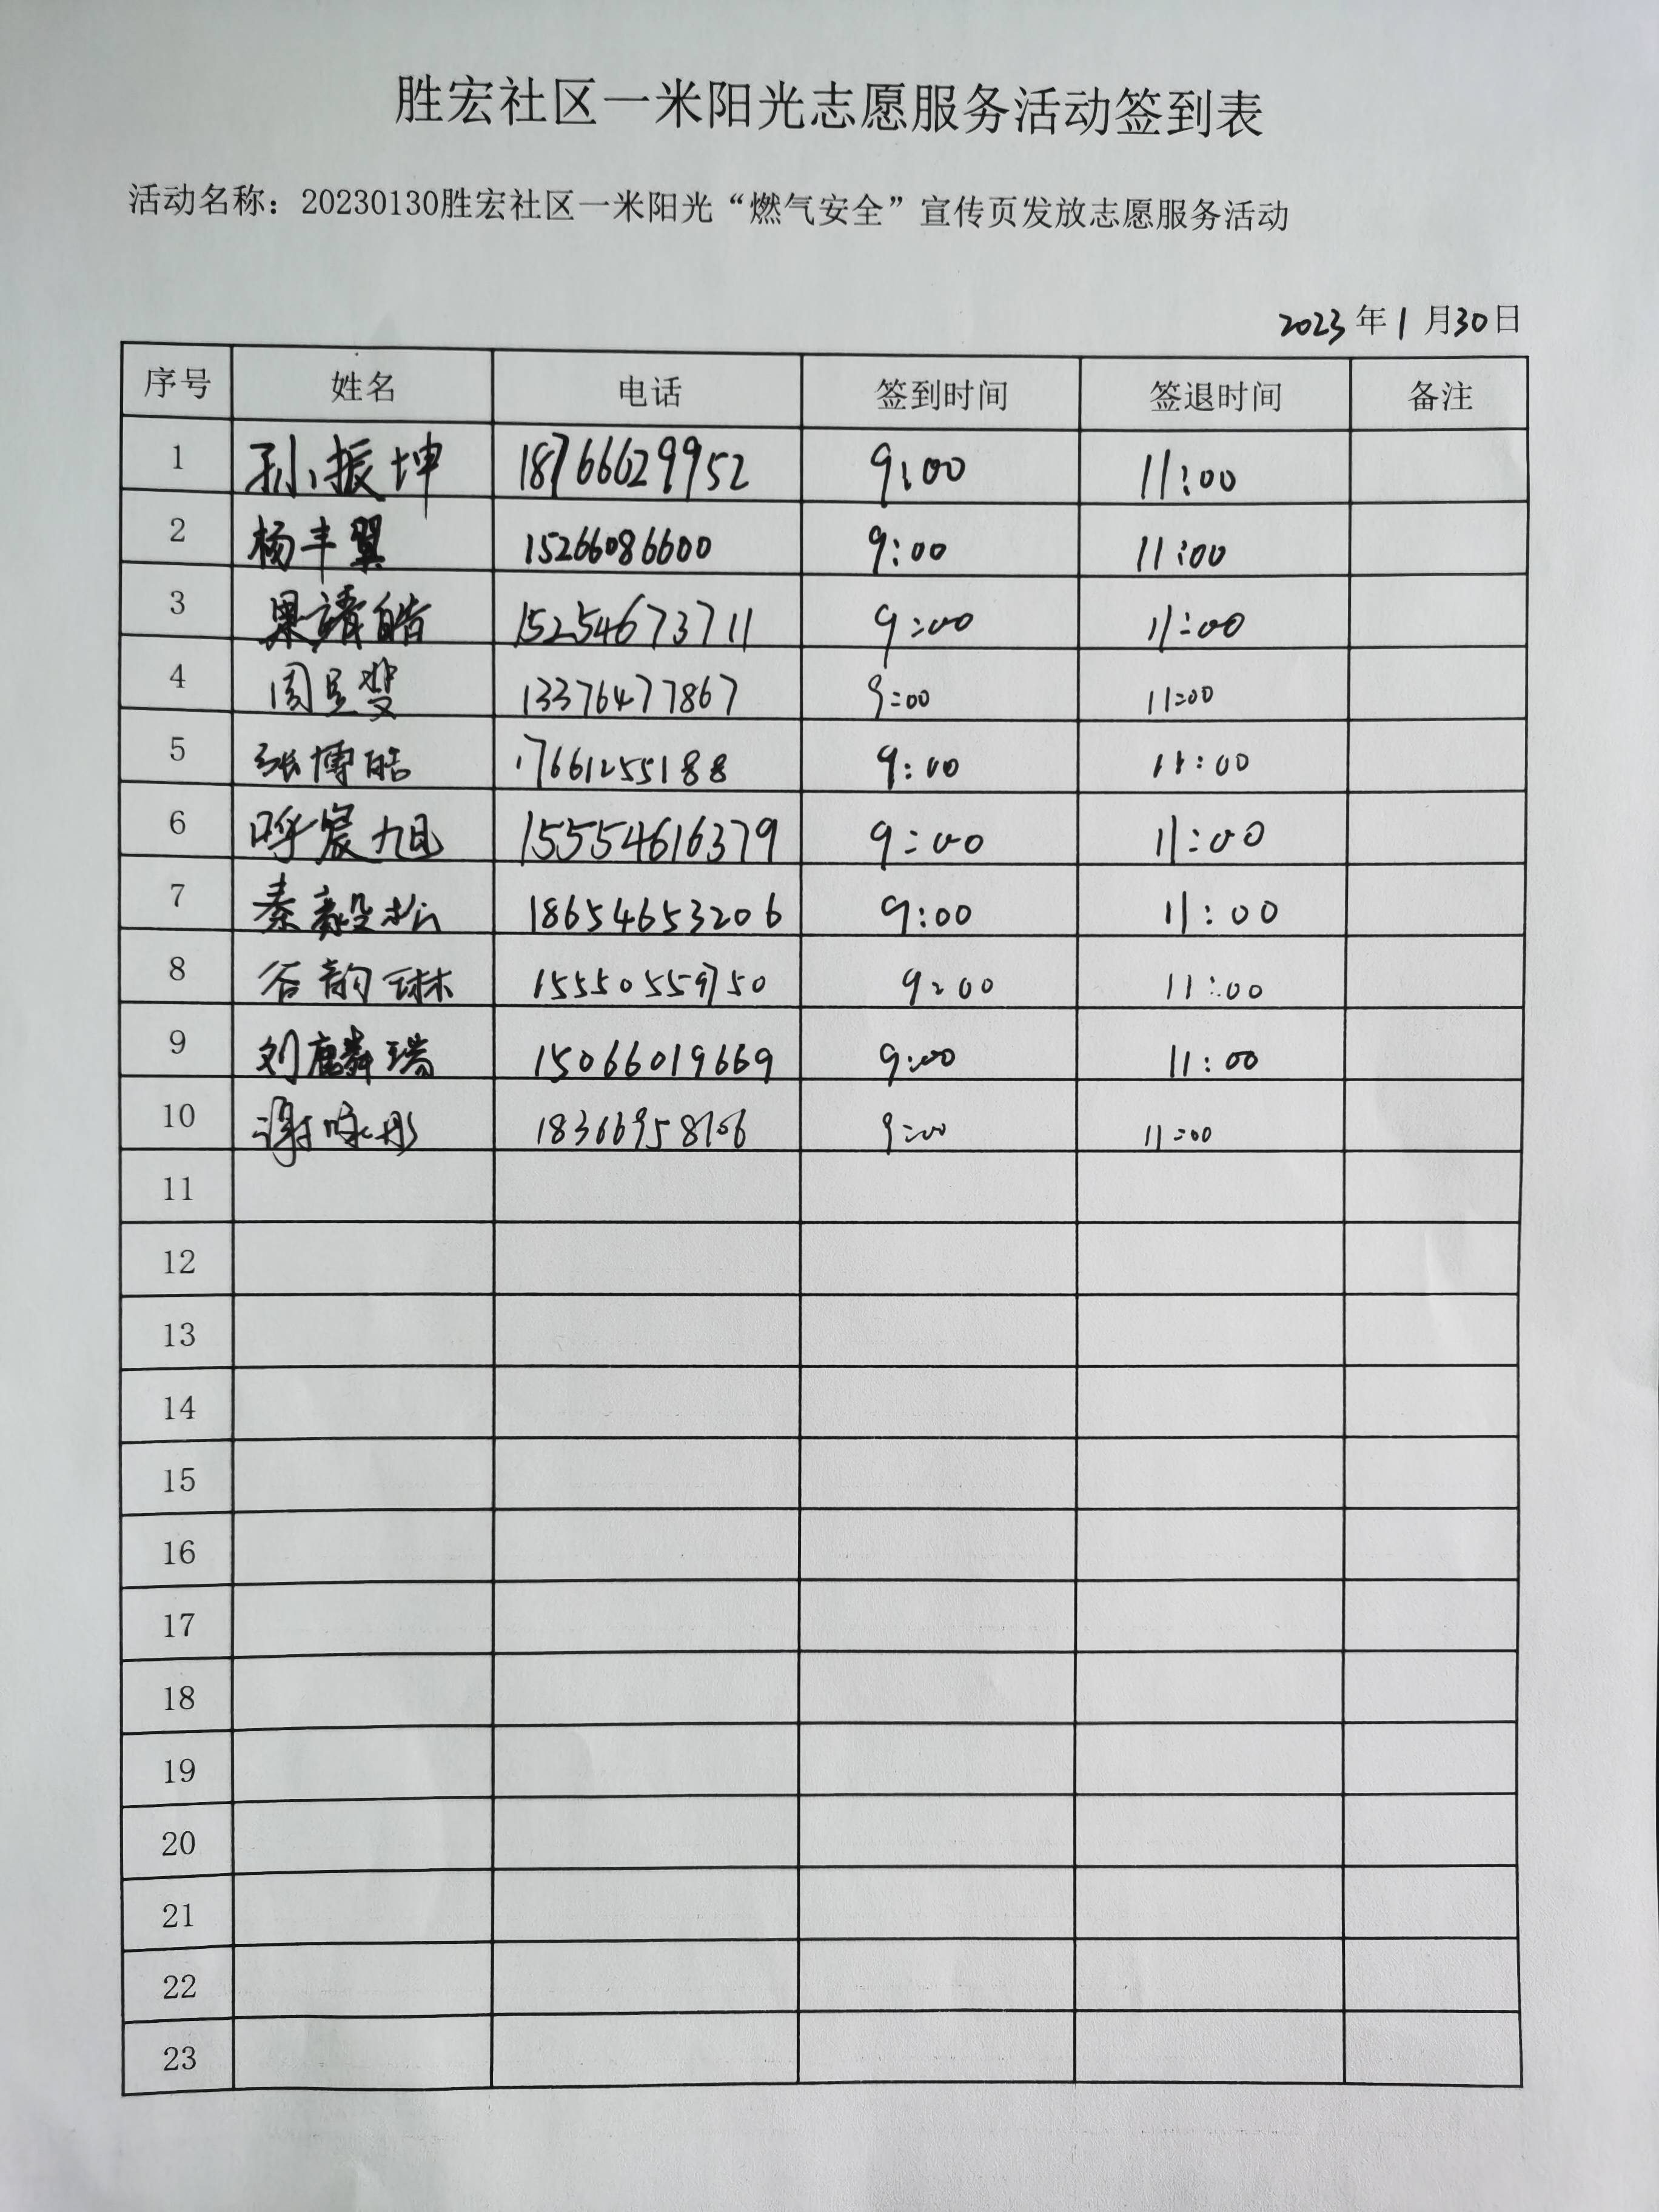 胜宏社区一米阳光志愿服务活动签到表
活动名称：20230130胜宏社区一米阳光“燃气安全”宣传页发放志愿服务活动
2023年1月30日
序号 姓名 电话 签到时间 签退时间 备注
1 孙振坤 18766629952 9:00 11:00
2 杨丰翼 15266086600 9:00 11:00
3 果靖皓 15254673711 9:00 11:00
4 周昱斐 13376477867 9:00 11:00
5 张博皓 17661255188 9:00 11:00
6 呼宸旭 15554616379 9:00 11:00
7 秦毅松 18654653206 9:00 11:00
8 谷韵琳 15550559750 9:00 11:00
9 刘麟瑞 15066019669 9:00 11:00
10 谢咏彤 9:00 11:00
11
12
13
14
15
16
17
18
19
20
21
22
23